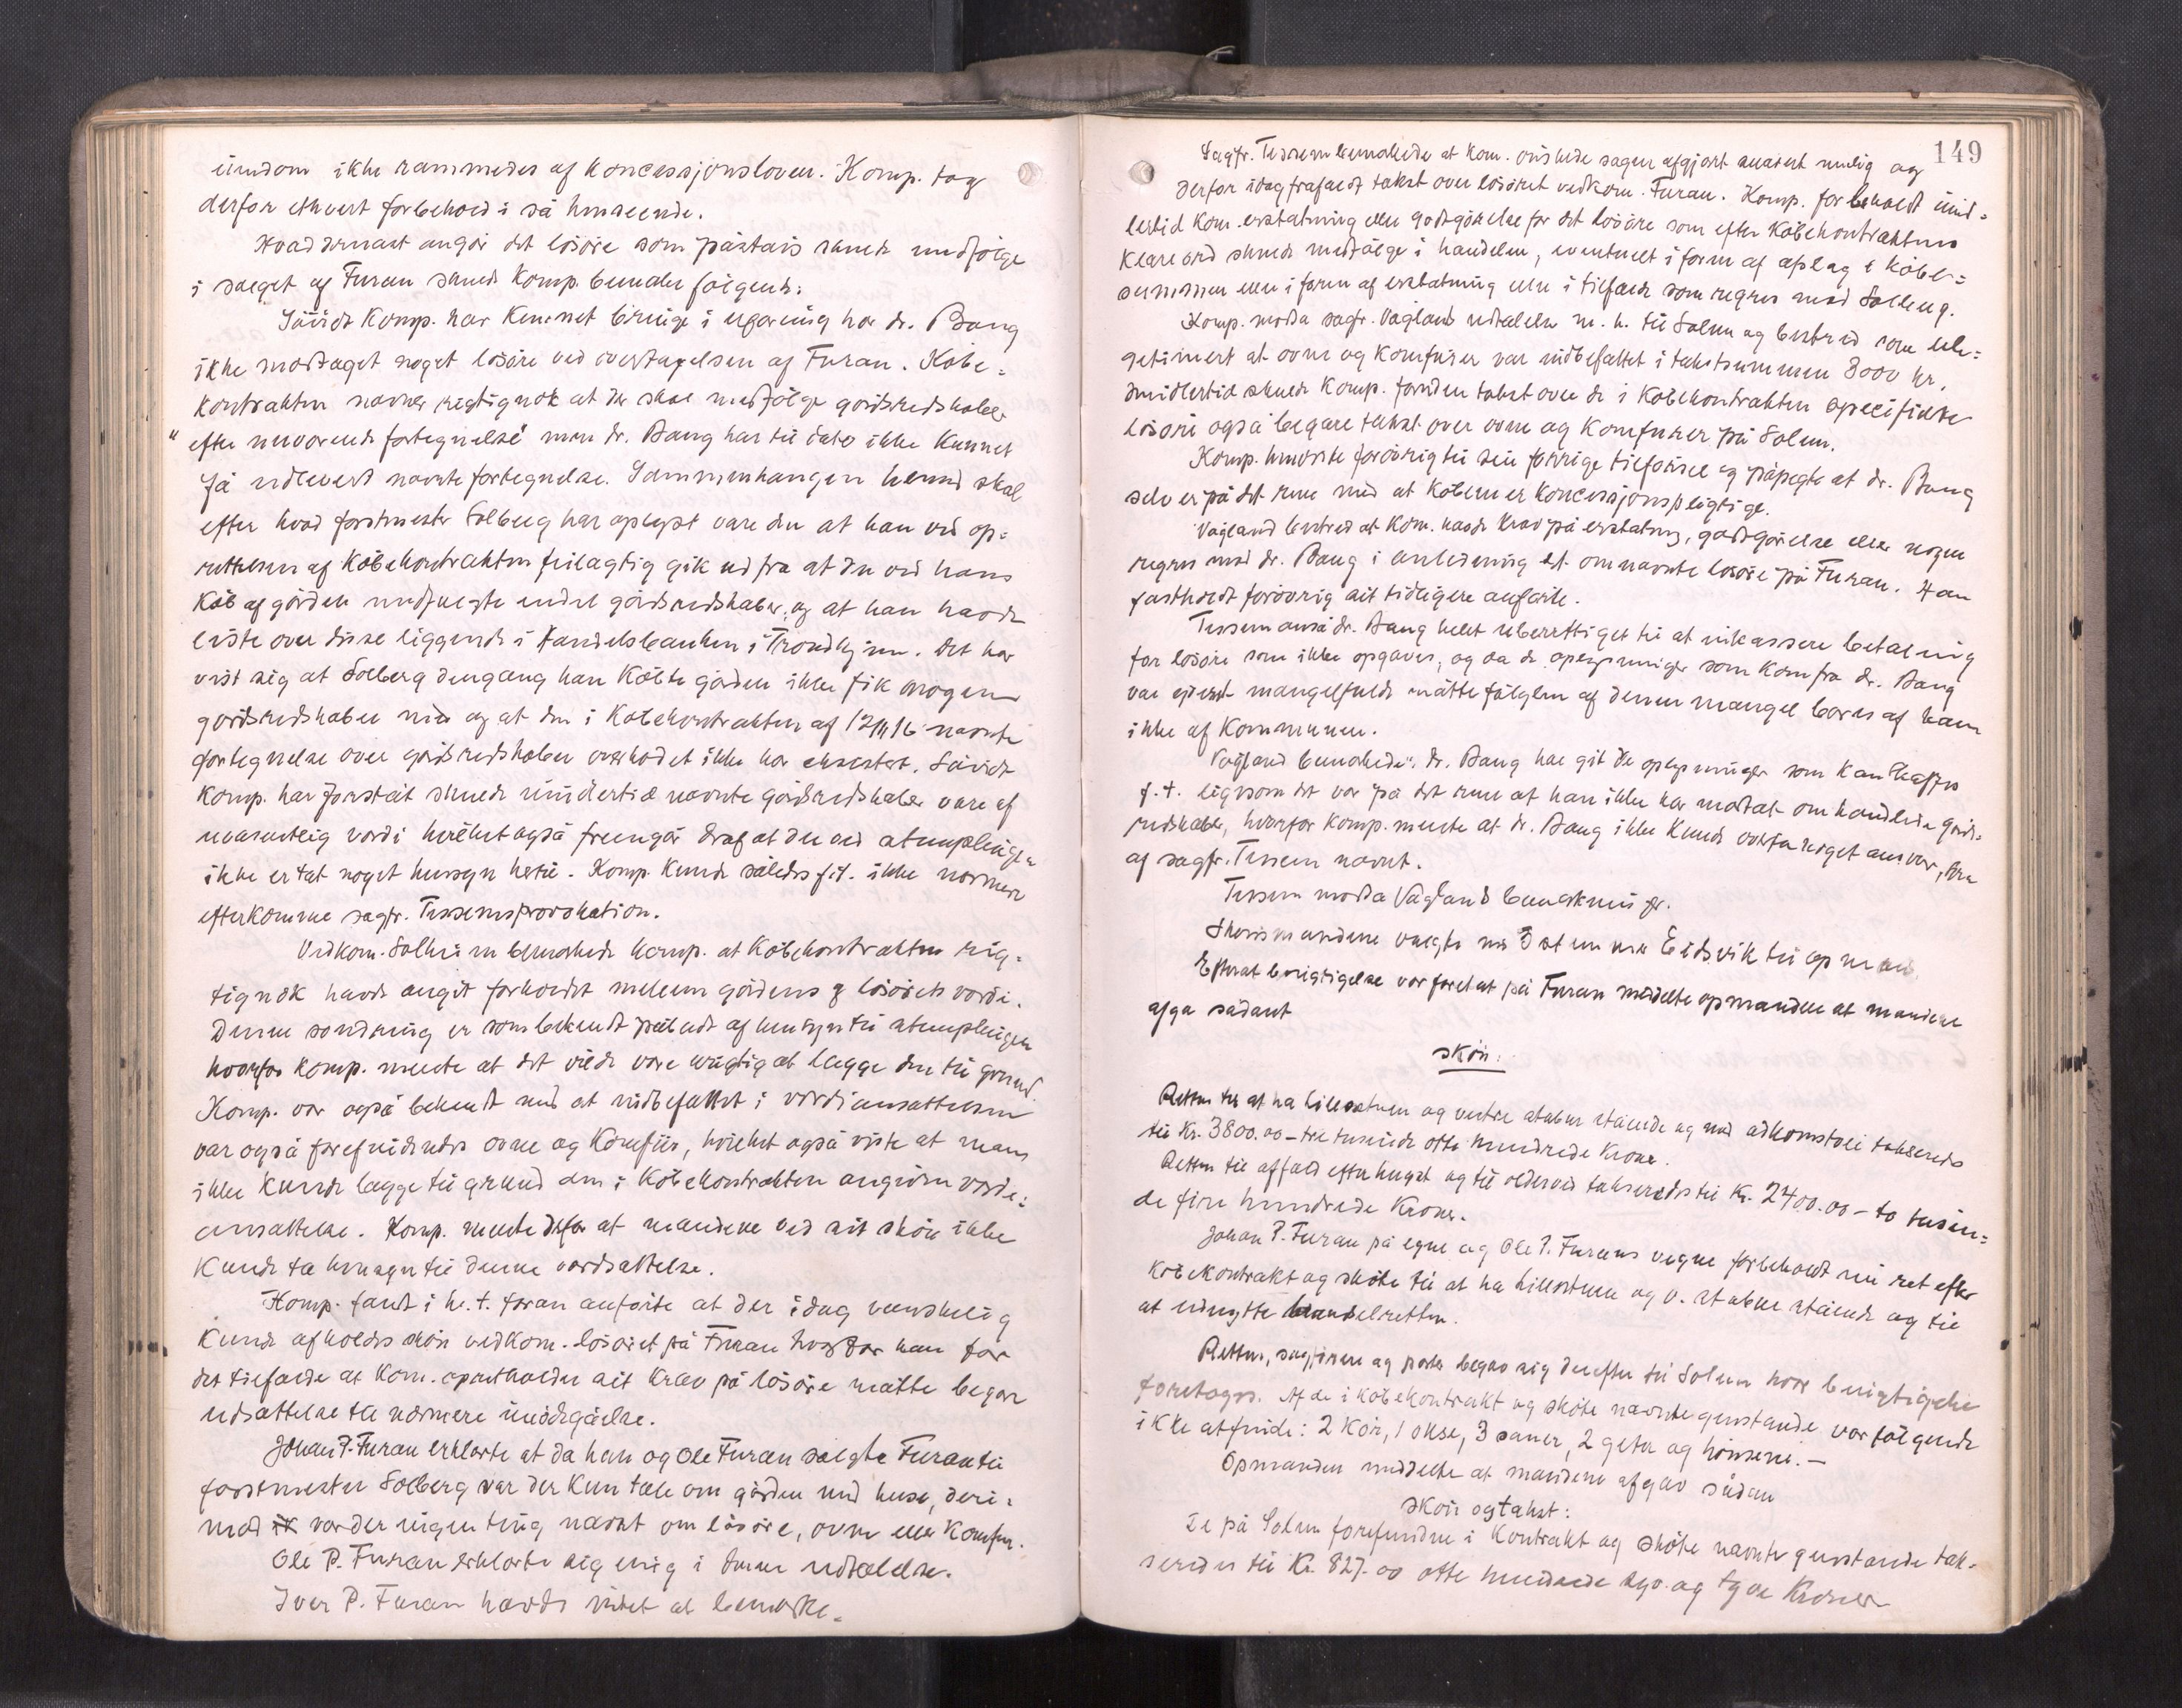 eiendom ikke rammedes af koncessjonsloven. Komp. tog
derfor ethvert forbehold i så henseende.
Hvad dernæst angår det løsøre som påståes skulde medfølge
i salget af Furan skulde komp. bemærke følgende:
Såvidt komp. har kunnet bringe i erfaring har dr. Bang
ikke modtaget noget løsøre ved overtagelsen af Furan. Købe-
kontrakten nævner rigtignok at der skal medfølge gårdsredskaber
"efter nuværende fortegnelse" men dr. Bang har til dato ikke kunnet
få udleveret nævnte fortegnelse. Sammenhængen hermed skal
efter hvad forstmester Solberg har oplyst være den at han ved op-
rettelsen af købekontrakten feilagtig gik ud fra at der ved hans
køb af gården medfulgte endel gårdsredskaber, og at han havde
liste over disse liggende i Handelsbanken i Trondhjem. Det har
vist sig at Solberg dengang han købte gården ikke fik nogen
gårdsredskaber med og at den i købekontrakten af 12/11 16 nævnte
fortegnelse over gårdsredskaber overhodet ikke har eksistert. Såvidt
komp. har forståt skulde imidlertid nævnte gårdsredskaber være af
uvæsentlig værdi hvilket også fremgår deraf at der ved stemplingen
ikke er tat noget hensyn hertil. Komp. kunde således f.t. ikke nærmere
efterkomme sagfr. Tessems provokation.
Vedkom. Solheim bemærkede komp. at købekontrakten rig-
tignok havde angit forholdet mellem gårdens og løsørets værdi.
Denne sondring er som bekendt påbudt af hensyn til stemplingen
hvorfor komp. mente at det vilde være urigtig at lægge den til grund.
Komp. var også bekendt med at indbefattet i værdiansættelsen
var også forefindendes ovne og komfür, hvilket også viste at man
ikke kunde lægge til grund den i købekontrakten angivne værdi-
ansættelse. Komp. mente derfor at mændene ved sit skön ikke
kunde ta hensyn til denne værdsættelse.
Komp. fandt i h.t. foran anførte at der idag vanskelig
kunde afholdes skön vedkom. løsøret på Furan hvorfor han for
det tilfælde at kom. opretholder sit krav på løsøre måtte begære
udsættelse til nærmere imødegåelse.
Johan P. Furan erklærte at da han og Ole Furan solgte Furan til
forstmester Solberg var der kun tale om gården med huse, deri-
mod var der ingenting nævnt om løsøre, ovne eller komfur.
Ole P. Furan erklærte sig enig i denne udtalelse.
Iver P. Furan havde intet at bemærke.
149
Sagfr. Tessem bemærkede at kom. ønskede sagen afgjort snarest mulig og
derfor idag frafaldt takst over løsøret vedkom. Furan. Komp. forbeholdt imid-
lertid kom. erstatning eller godtgørelse for det løsøre som efter købekontraktens
klare ord skulde medfølge i handelen, eventuelt i form af afslag i købe-
summen eller i form af erstatning eller i tilfælde som regres mod Solberg.
Komp. modsa sagfr. Vaglands udtalelse m.h. til Solem og bestred som ule-
getimert at ovne og komfurer var indbefattet i takstsummen 8000 kr.
Imidlertid skulde komp. foruden takst over de i købekontrakten specifiserte
løsøre også begære takst over ovne og komfurer på Solem.
Komp. henviste forövrig til sin forrige tilførsel og påpegte at dr. Bang
selv er på det rene med at køberne er koncessjonspligtige.
Vagland bestred at kom. havde krav på erstatning, godtgørelse eller nogen
regres mod dr. Bang i anledning af omnævnte løsøre på Furan. Han
fastholdt forövrig sit tidligere anførte.
Tessem anså dr. Bang helt uberettiget til at inkassere betaling
for løsøre som ikke opgaves, og da de oplysninger som kom fra dr. Bang
var ytterst mangelfulde måtte følgen af denne mangel bæres af ham
ikke af kommunen.
Vagland bemærkede: dr. Bang har git de oplysninger som kan skaffes
f.t. ligesom det var på det rene at han ikke har modtat omhandlede gårds-
redskaber, hvorfor komp. mente at dr. Bang ikke kunde overta noget ansvar, som
af sagfr. Tessem nævnt.
Tessem modsa Vaglands bemerkninger.
Skönsmændene valgte Eidsvik til opmand.
Efterat besigtigelse var foretat på Furan meddelte opmanden at mændene
afga sådant
skön:
Retten til at ha lillestuen og vestre stabur stående og med adkomstvei takseredes
til kr. 3800.00 - tre tusinde otte hundrede kroner.
Retten til affald efter hugst og til oldeved takseredes til kr. 2400.00 - to tusin-
de fire hundrede kroner.
Johan P. Furan på egne og Ole P. Furans vegne forbeholdt sin ret efter
købekontrakt og skøte til at ha lillestuen og v. stabur stående og til
at udnytte handelsretten.
Retten, sagførere og parter begav sig derefter til Solem hvor besigtigelse
foretoges. Af de i købekontrakt og skøte nævnte genstande var følgende
ikke at finde: 2 kör, 1 okse, 3 sauer, 2 geter og hönseri. -
Opmanden meddelte at mændene afgav sådan
skön og takst:
De på Solem forefundne i kontrakt og skøte nævnte genstande tak-
seredes til kr. 827.00 otte hundrede syv og tyve kroner